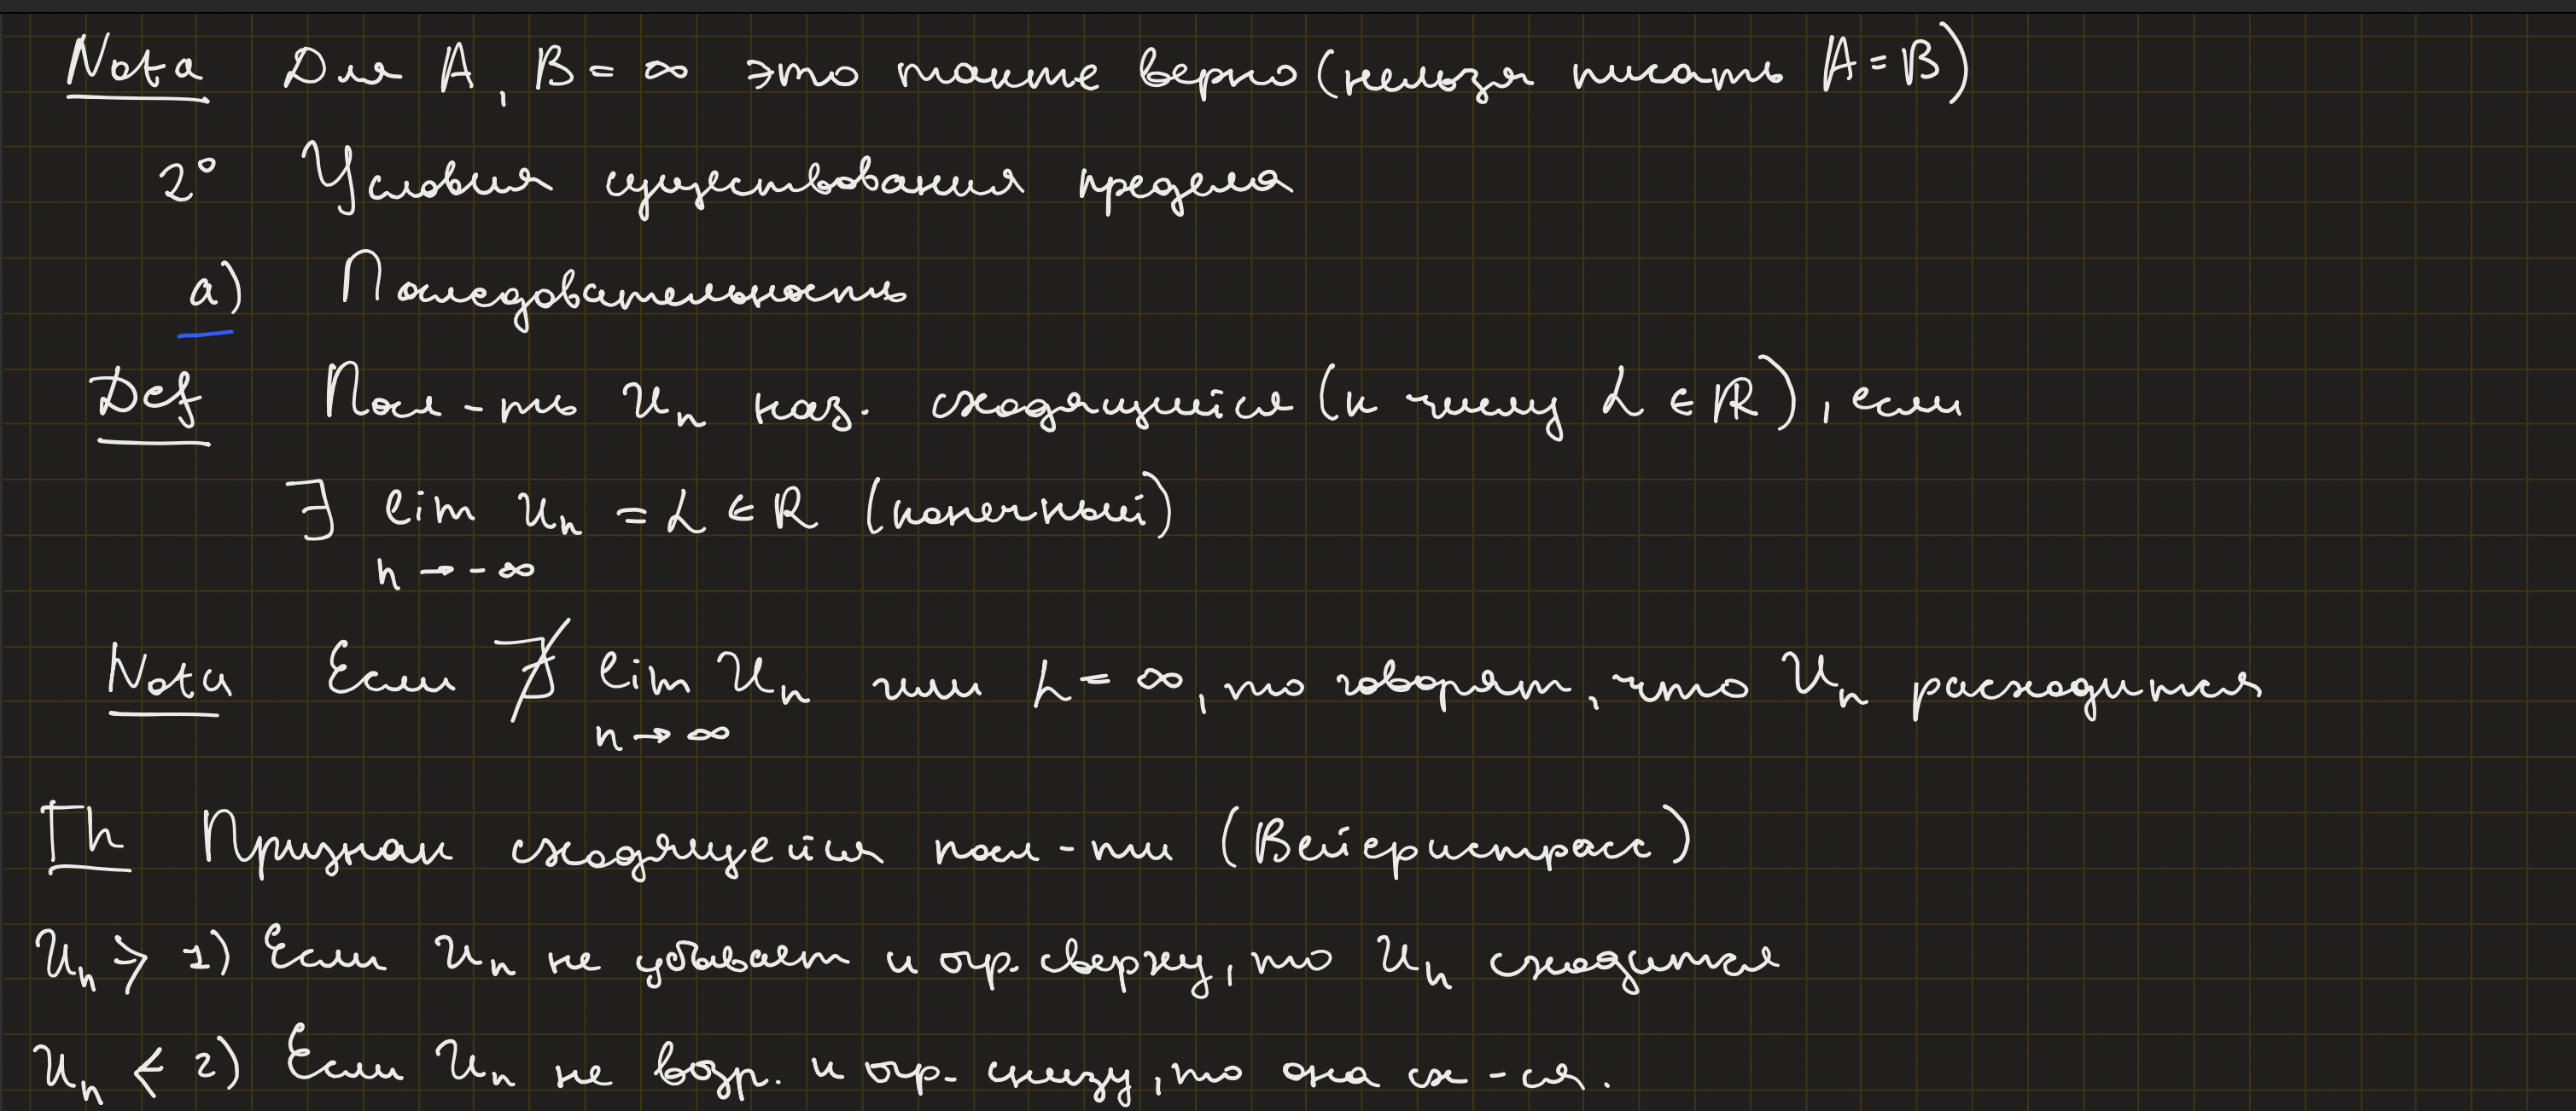 Nota Для A, B = ∞ это також верно (нельзя писать A = B)
2° Условия существования предела
a) Последовательность
Def Посл-ть Uₙ наз. сходящийся (к числу L ∈ ℝ), если
∃ lim Uₙ = L ∈ R (конечный)
n → -∞
Nota Если ∄ lim Uₙ или L = ∞, то говорят, что Uₙ расходится
n → ∞
Th Признак сходящейся посл-ти (Вейеристрасс)
Uₙ ⩾ 1) Если Uₙ не убывает и огр. сверху, то Uₙ сходится
Uₙ ⩽ 2) Если Uₙ не возр. и огр. снизу, то она сх-ся.